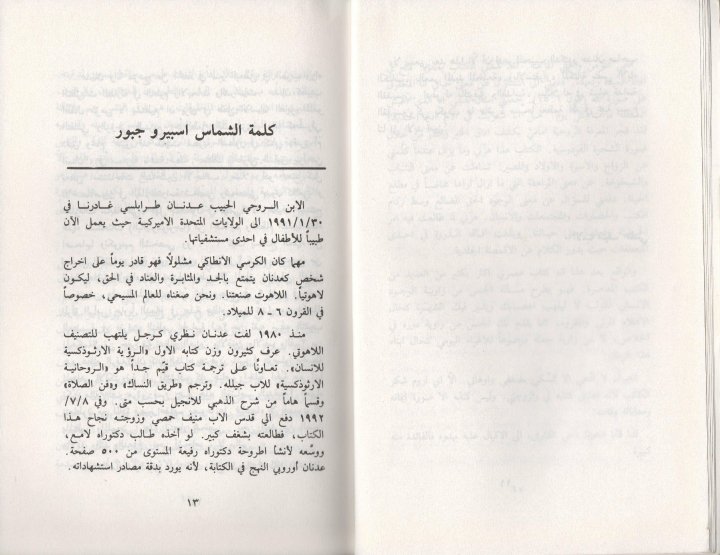 كلمة الشماس اسبيرو جبور
الابن الروحي الحبيب عدنان طرابلسي غادرنا في
١٩٩١/١/٣٠ الى الولايات المتحدة الاميركية حيث يعمل الآن
طبيباً للأطفال في احدى مستشفياتها.
مهما كان الكرسي الانطاكي مشلولاً فهو قادر يوماً على اخراج
شخص كعدنان يتمتع بالجد والمثابرة والعناد في الحق، ليكون
لاهوتياً. اللاهوت صنعتنا. ونحن صغناه للعالم المسيحي، خصوصاً
في القرون ٦ - ٨ للميلاد.
منذ ١٩٨٠ لفت عدنان نظري كرجل يلتهب للتصنيف
اللاهوتي. عرف كثيرون وزن كتابه الاول «الرؤية الارثوذكسية
للانسان». تعاونّا على ترجمة كتاب قيّم جداً هو «الروحانية
الارثوذكسية» للاب جيلله. وترجم «طريق النساك» و«فن الصلاة»
وقسماً هاماً من شرح الذهبي للانجيل بحسب متى. وفي ٧/٨/
١٩٩٢ دفع الي قدس الاب منيف حمصي وزوجته نجاح هذا
الكتاب، فطالعته بشغف كبير. لو أخذه طالب دكتوراه لامع،
ووسَّعه لأنشأ اطروحة دكتوراه رفيعة المستوى من ٥٠٠ صفحة.
عدنان أوروبي النهج في الكتابة، لأنه يورد بدقة مصادر استشهاداته.
١٣